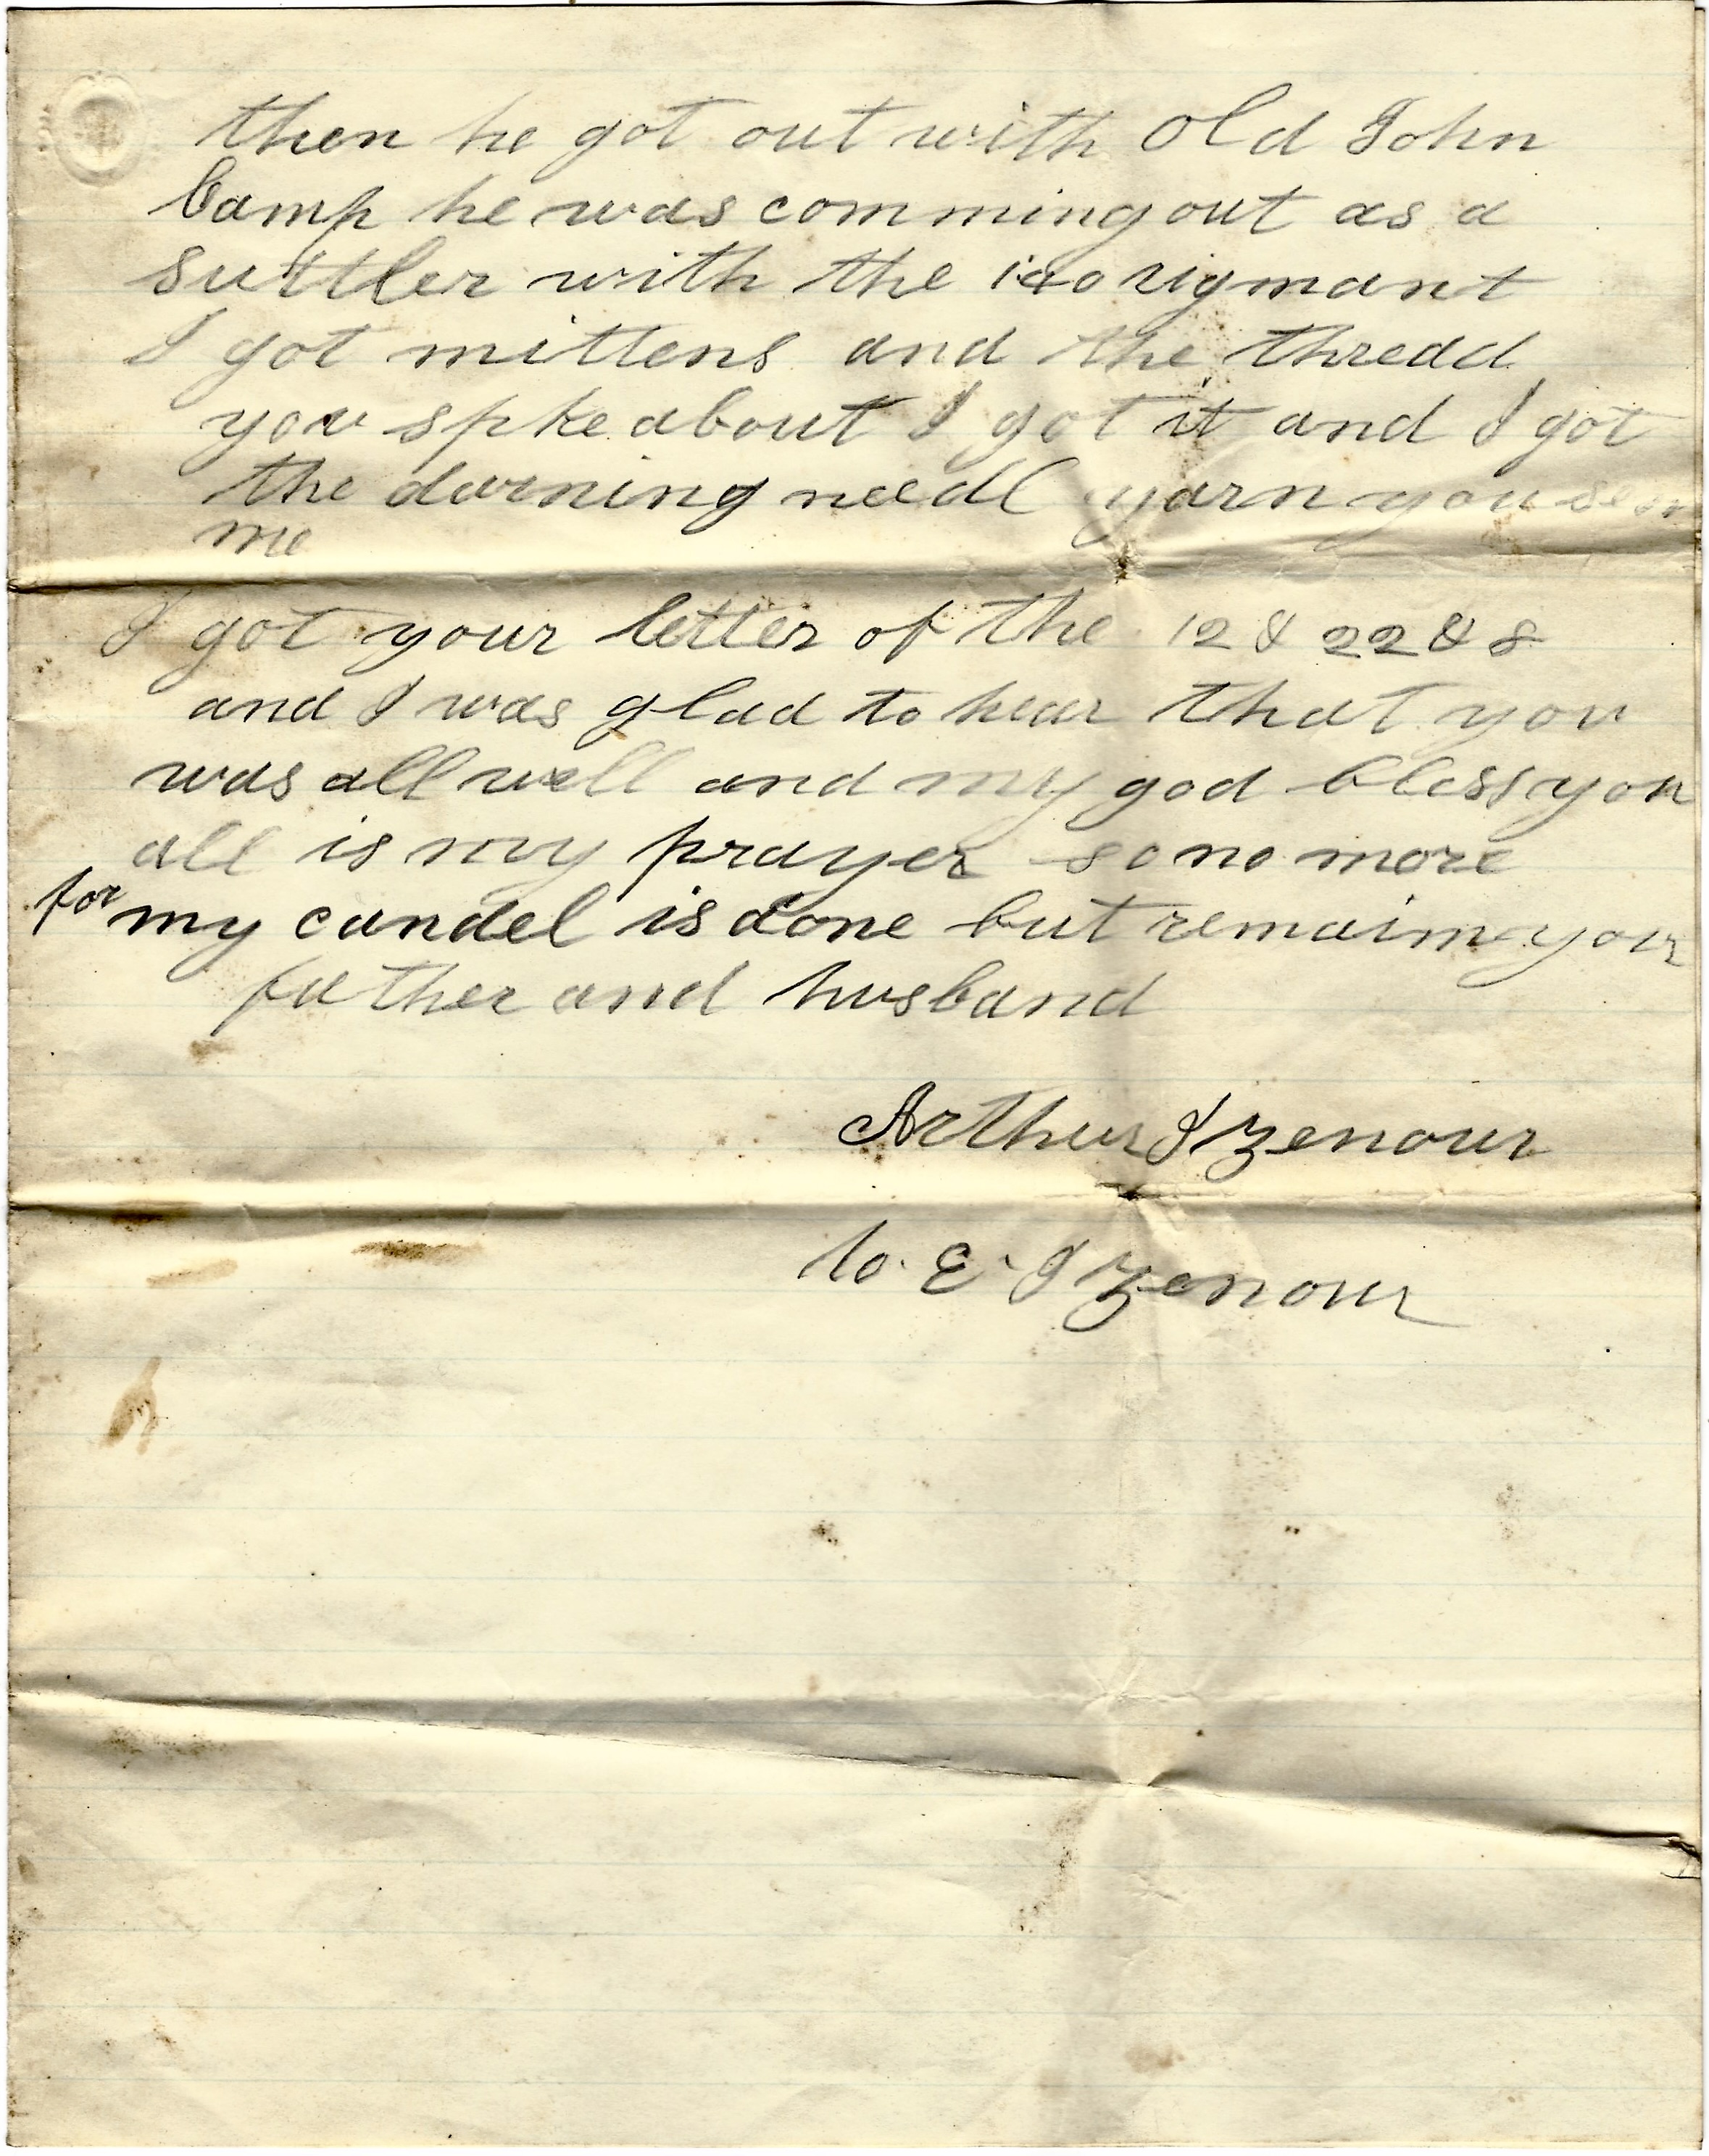 then he got out with Old John
Camp he was comming out as a
suttler with the 140 rigmant
I got mittens and the thread
you spke about I got it and I got
the darning needl yarn you sent
me
I got your letter of the 12 & 22 & 8
and I was glad to hear that you
was all well and my god bless you
all is my prayer so no more
for my candel is done but remaim your
father and husband
Arthur Izenour
to E Izenour